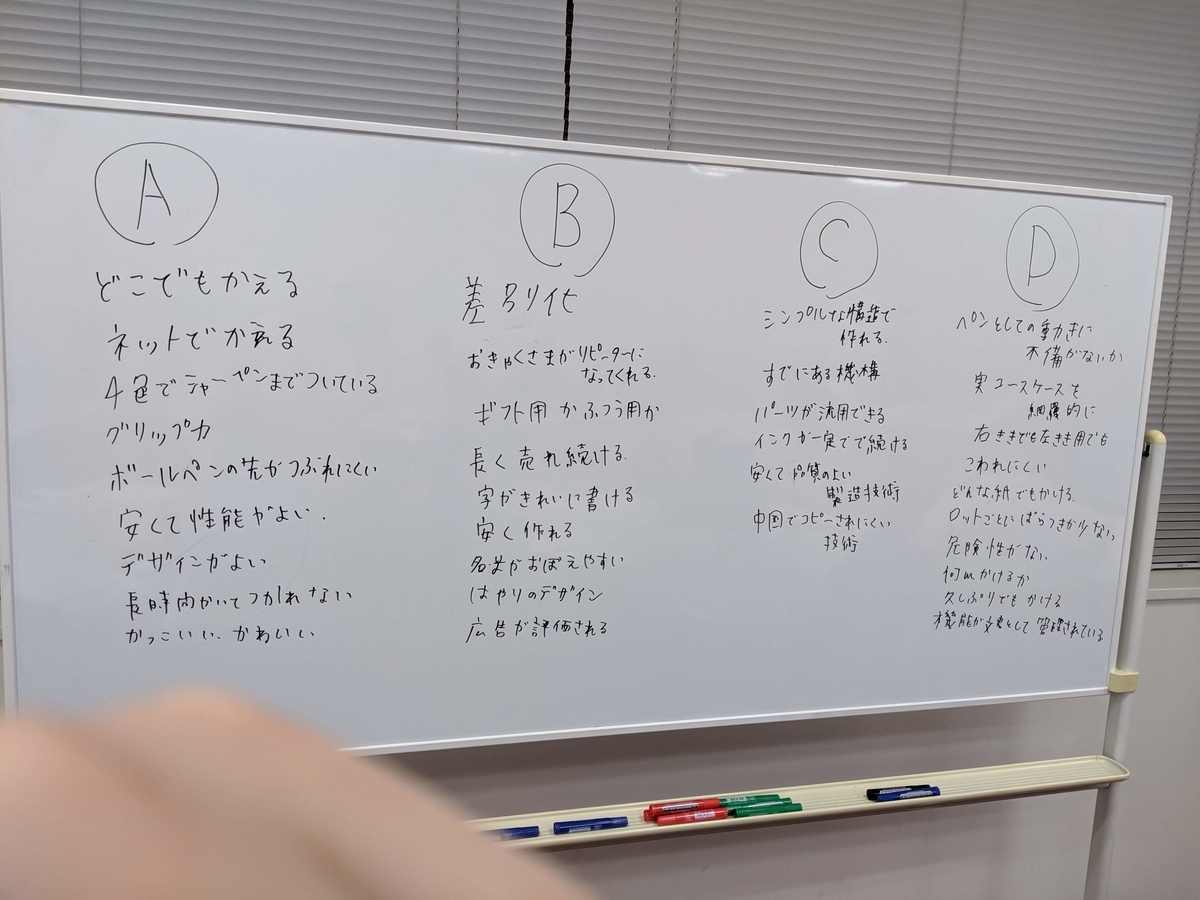 A
どこでもかえる
ネットでかえる
4色でシャーペンまでついている
グリップ力
ボールペンの先がつぶれにくい
安くて性能がよい.
デザインがよい
長時間かいてつかれない
かっこいい、かわいい
B
差別化
おきゃくさまがリピーターに
なってくれる.
ギフト用かふつう用か
長く売れ続ける.
字がきれいに書ける
安く作れる
名前がおぼえやすい
はやりのデザイン
広告が評価される
C
シンプルな構造で
作れる.
すでにある機構
パーツが流用できる
インクが一定ででで続ける
安くて品質のよい
製造技術
中国でコピーされにくい
技術
D
ペンとしての動きに
不備がないか
実ユースケースを
網羅的に
右ききでも左きき用でも
こわれにくい
どんな紙でもかける.
ロットごとにばらつきが少ない
危険性がない
何mかけるか
久しぶりでもかける
機能が文書として管理されている